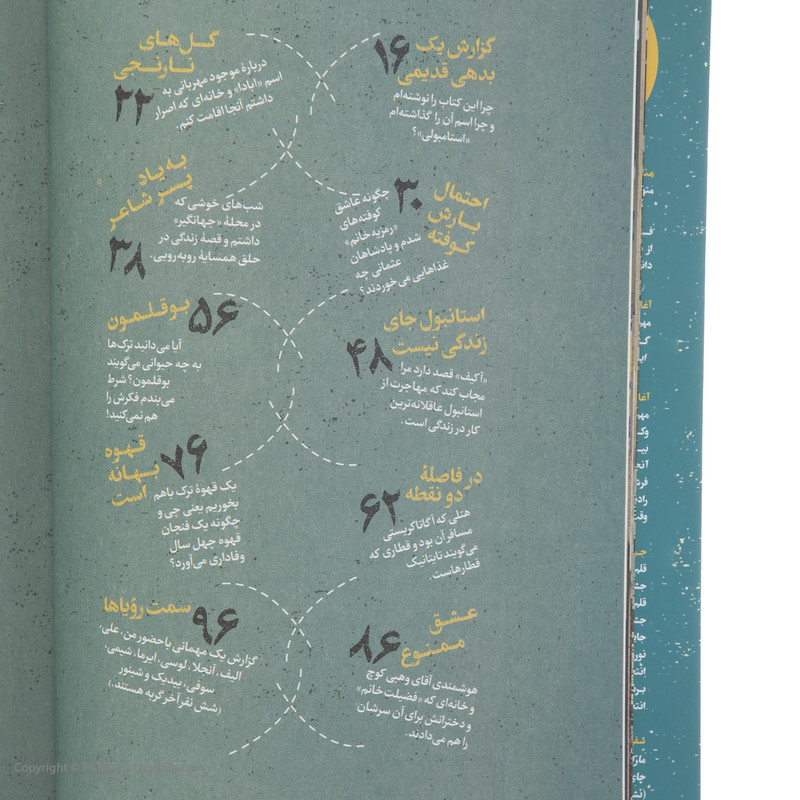 گزارش یک
بدهی قدیمی
۱۶
چرا این کتاب را نوشته‌ام
و چرا اسم آن را گذاشته‌ام
«استامبولی»؟
گل‌های
نارنجی
۲۲
دربارهٔ موجود مهربانی به
اسم «ابادا» و خانه‌ای که اصرار
داشتم آنجا اقامت کنم.
احتمال
بارش
کوفته
۳۰
چگونه عاشق
کوفته‌های
«رمزیه خانم»
شدم و پادشاهان
عثمانی چه
غذاهایی می‌خوردند؟
به یاد
پسر شاعر
۳۸
شب‌های خوشی که
در محلهٔ «جهانگیر»
داشتم و قصهٔ زندگی در
حلق همسایهٔ روبه‌رویی.
استانبول جای
زندگی نیست
۴۸
«آکیف» قصد دارد مرا
مجاب کند که مهاجرت از
استانبول عاقلانه‌ترین
کار در زندگی است.
بوقلمون
۵۶
آیا می‌دانید ترک‌ها
به چه حیوانی می‌گویند
بوقلمون؟ شرط
می‌بندم فکرش را
هم نمی‌کنید!
در فاصلهٔ
دو نقطه
۶۲
هتلی که آگاتا کریستی
مسافر آن بود و قطاری که
می‌گویند تایتانیک
قطارهاست.
قهوه
بهانه
است
۷۶
یک قهوهٔ ترک با هم
بخوریم یعنی چی و
چگونه یک فنجان
قهوه چهل سال
وفاداری می‌آورد؟
عشق
ممنوع
۸۶
هوشمندی آقای وهبی کوچ
و خانه‌ای که «فضیلت خانم»
و دخترانش برای آن سرشان
را هم می‌دادند.
سمت رؤیاها
۹۶
گزارش یک مهمانی با حضور من، علی،
الیف، آنجلا، لوسی، ایرما، شیمی،
سوقی، بیدیک و شینور
(شش نفر آخر گربه هستند.)